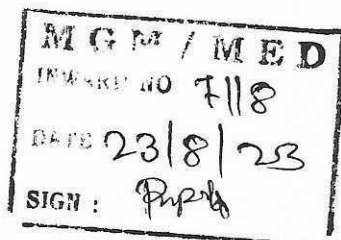 MGM / MED
INWARD NO 7118
DATE 23/8/23
SIGN :